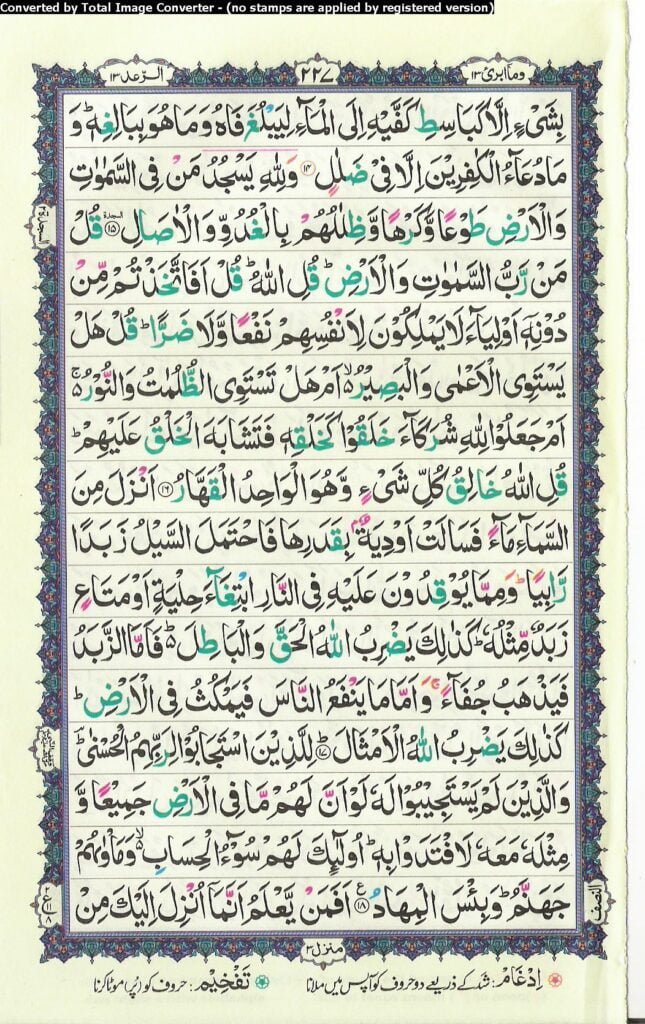 Converted by Total Image Converter - (no stamps are applied by registered version)
وما ابرئ ١٣
٢٢٧
الرعد ١٣
بِشَیْءٍ اِلَّا كَبَاسِطِ كَفَّیْهِ اِلَى الْمَآءِ لِیَبْلُغَ فَاهُ وَمَا هُوَ بِبَالِغِهٖؕ وَ
مَا دُعَآءُ الْكٰفِرِیْنَ اِلَّا فِیْ ضَلٰلٍ ۝۱۴ وَلِلّٰهِ یَسْجُدُ مَنْ فِی السَّمٰوٰتِ
وَالْاَرْضِ طَوْعًا وَّكَرْهًا وَّظِلٰلُهُمْ بِالْغُدُوِّ وَالْاٰصَالِ السجدة ۝۱۵ قُلْ
مَنْ رَّبُّ السَّمٰوٰتِ وَالْاَرْضِؕ قُلِ اللّٰهُؕ قُلْ اَفَاتَّخَذْتُمْ مِّنْ
دُوْنِهٖۤ اَوْلِیَآءَ لَا یَمْلِكُوْنَ لِاَنْفُسِهِمْ نَفْعًا وَّلَا ضَرًّاؕ قُلْ هَلْ
یَسْتَوِی الْاَعْمٰى وَالْبَصِیْرُ۬ۙ اَمْ هَلْ تَسْتَوِی الظُّلُمٰتُ وَالنُّوْرُ۬ۚ
اَمْ جَعَلُوْا لِلّٰهِ شُرَكَآءَ خَلَقُوْا كَخَلْقِهٖ فَتَشَابَهَ الْخَلْقُ عَلَیْهِمْؕ
قُلِ اللّٰهُ خَالِقُ كُلِّ شَیْءٍ وَّهُوَ الْوَاحِدُ الْقَهَّارُ ۝۱۶ اَنْزَلَ مِنَ
السَّمَآءِ مَآءً فَسَالَتْ اَوْدِیَةٌۢ بِقَدَرِهَا فَاحْتَمَلَ السَّیْلُ زَبَدًا
رَّابِیًاؕ وَمِمَّا یُوْقِدُوْنَ عَلَیْهِ فِی النَّارِ ابْتِغَآءَ حِلْیَةٍ اَوْ مَتَاعٍ
زَبَدٌ مِّثْلُهٗؕ كَذٰلِكَ یَضْرِبُ اللّٰهُ الْحَقَّ وَالْبَاطِلَ۬ؕ فَاَمَّا الزَّبَدُ
فَیَذْهَبُ جُفَآءًۚ وَاَمَّا مَا یَنْفَعُ النَّاسَ فَیَمْكُثُ فِی الْاَرْضِؕ
كَذٰلِكَ یَضْرِبُ اللّٰهُ الْاَمْثَالَؕ ۝۱۷ لِلَّذِیْنَ اسْتَجَابُوْا لِرَبِّهِمُ الْحُسْنٰىؔؕ
وَالَّذِیْنَ لَمْ یَسْتَجِیْبُوْا لَهٗ لَوْ اَنَّ لَهُمْ مَّا فِی الْاَرْضِ جَمِیْعًا وَّ
مِثْلَهٗ مَعَهٗ لَافْتَدَوْا بِهٖؕ اُولٰٓىِٕكَ لَهُمْ سُوْٓءُ الْحِسَابِ۬ۙ وَمَاْوٰىهُمْ
جَهَنَّمُؕ وَبِئْسَ الْمِهَادُ ۝۱۸ ع اَفَمَنْ یَّعْلَمُ اَنَّمَاۤ اُنْزِلَ اِلَیْكَ مِنْ
النصف
منزل ٣
اِدْغَام: شد کے ذریعے دو حروف کو آپس میں ملانا
تَفْخِیْم: حروف کو (پُر) موٹا کرنا